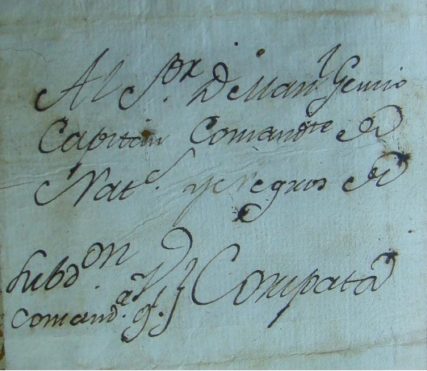 Al S.or D.n Man.l Genuio
Capitan Comand.te de
Nat.s y Negros de
Subd.on
Comand.a g.l } Compata